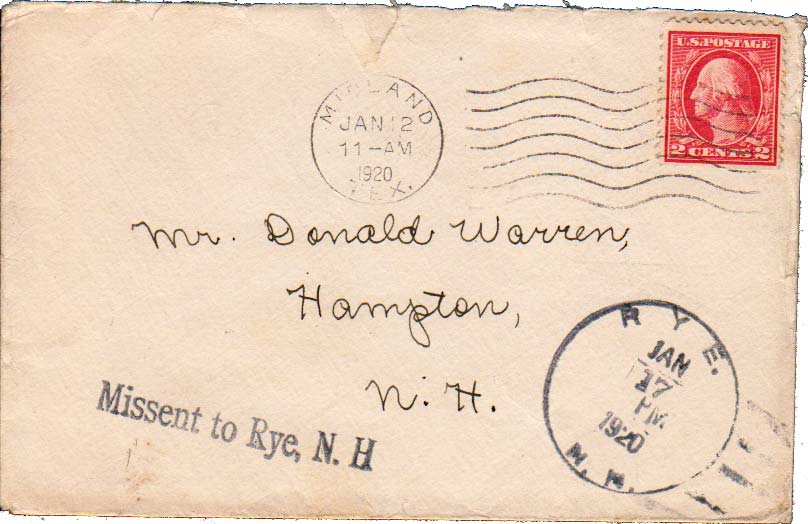 U.S. POSTAGE
2 CENTS 2
MIDLAND
JAN 12
11-AM
1920
TEX.
Mr. Donald Warren,
Hampton,
N. H.
Missent to Rye, N. H
RYE.
JAN
17
PM
1920
N. H.